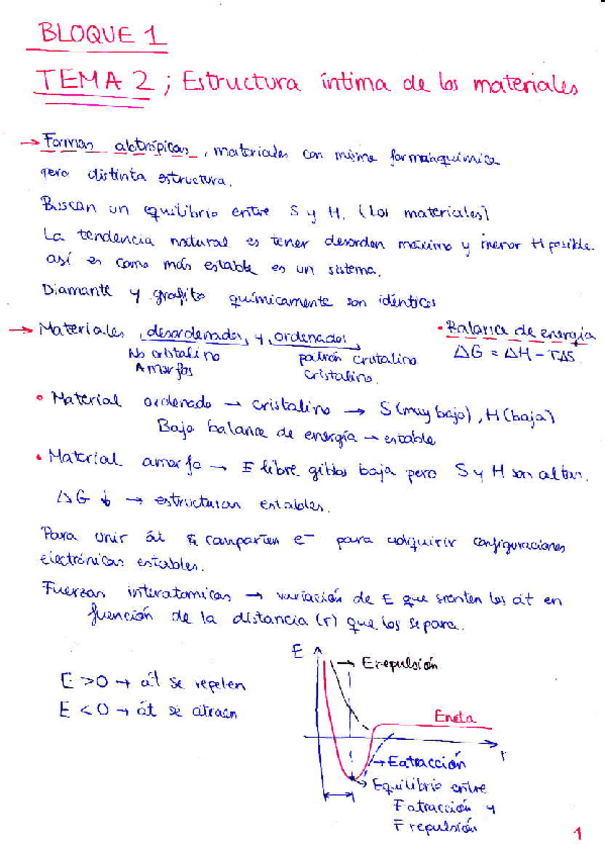 BLOQUE 1
TEMA 2 ; Estructura íntima de los materiales
→ Formas alotrópicas, materiales con misma forma química
pero distinta estructura.
Buscan un equilibrio entre S y H. (Los materiales)
La tendencia natural es tener desorden máximo y menor H posible.
así es como más estable es un sistema.
Diamante y grafito químicamente son idénticos
→ Materiales desordenados, y, ordenados
No cristalino
Amorfos
patrón cristalino
Cristalino.
• Balance de energía
ΔG = ΔH - TΔS
• Material ordenado → cristalino → S (muy bajo), H (baja)
Bajo balance de energía → estable
• Material amorfo → E libre gibbs baja pero S y H son altas.
ΔG ↓ → estructuras estables.
Para unir át comparten e⁻ para adquirir configuraciones
electrónicas estables.
Fuerzas interatomicas → variación de E que sienten los át en
función de la distancia (r) que los separa.
E > 0 → át se repelen
E < 0 → át se atraen
E
→ Erepulsión
Eneta
r
→ Eatracción
→ Equilibrio entre
F atracción y
F repulsión
1